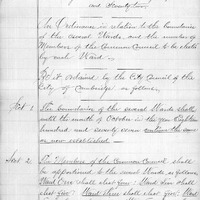 and Description.
An Ordinance in relation to the boundaries
of the several Wards, and the number of
Members of the Common Council to be chosen
by each Ward.
Be it ordained by the City Council of the
City of Cambridge, as follows,
Sect. 1. The boundaries of the several Wards shall
until the month of October in the year Eighteen
hundred and seventy seven continue the same
as now established.
Sect. 2. The Members of the Common Council shall
be apportioned to the several Wards, as follows,
Ward One shall elect four: Ward Two shall
elect four: Ward three shall elect